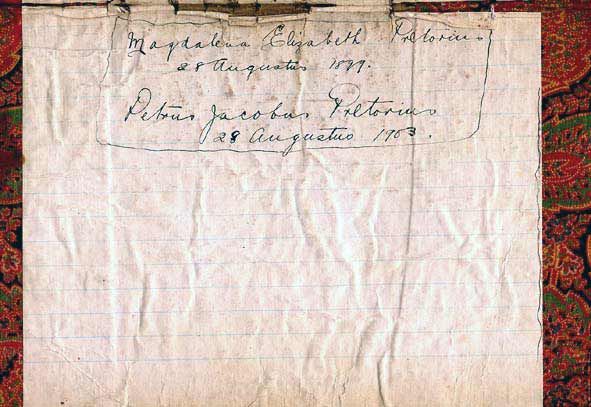 Magdalena Elizabeth Pretorius
28 Augustus 1899.
Petrus Jacobus Pretorius
28 Augustus 1903.